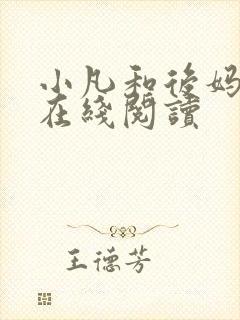 小凡和後妈
在綫閱讀
王德芳